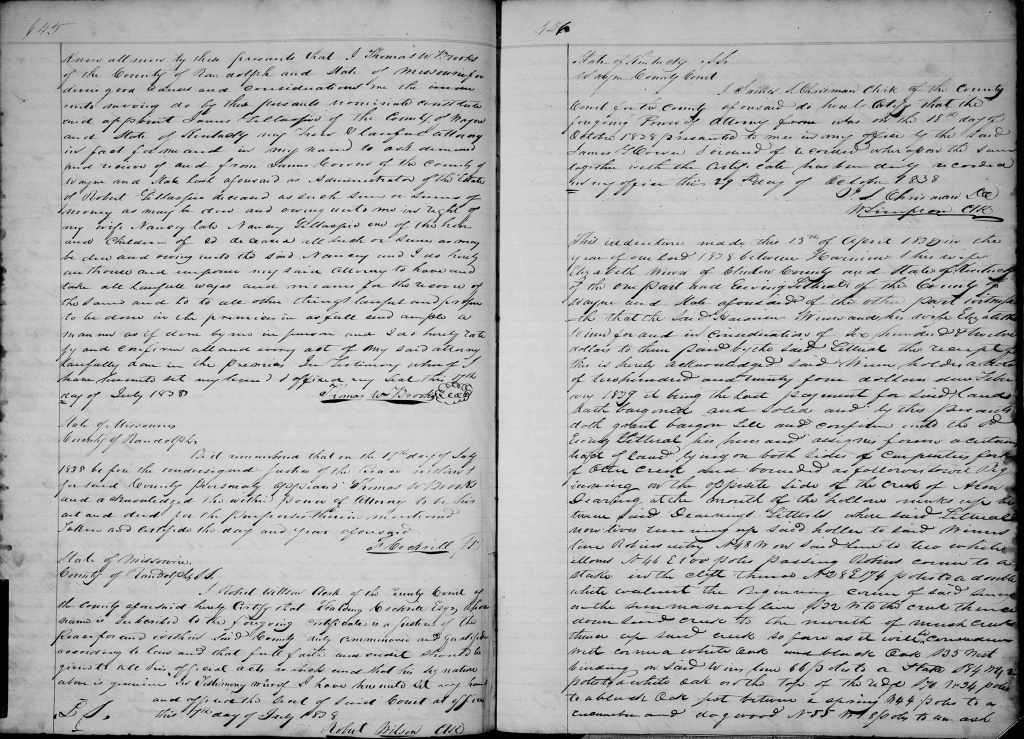 645
Know all men by these presents that I Thomas W Brooks
of the County of Randolph and State of Missouri for
divers good Causes and Considerations me the
unto moving do by these presents nominate constitute
and appoint James Gillaspie of the County of Wayne
and State of Kentucky my True & lawful attorney
in fact for me and in my name to ask demand
and receive of and from James Cowen of the County of
Wayne and State last aforesaid as Administrator of the Estate
of Robert Gillaspie deceased as such Sum or Sums of
money as may be due and owing unto me in right of
my wife Nancy late Nancy Gillaspie one of the heirs
and Children of sd deceased all such or sums as may
be due and owing unto the said Nancy and I do hereby
authorise and impower my said attorney to have and
take all lawfull ways and means for the recover of
the Same and to do all other things lawful and proper
to be done in the premises in as full and ample a
manner as if done by me in person and I do hereby rate
fy and confirm all and every act of my said attorney
lawfully done in the premises In Testimony whereof I
have hereunto set my hand & affixed my seal this 17th
day of July 1838 Thomas W Brooks Seal
State of Missouri
County of Randolph
Be it remembered that on the 17th day of July
1838 before the undersigned Justice of the Peace within &
for said County personaly appeared Thomas W Brooks
and acknowledged the within Power of Attorney to be his
act and deed for the purposes therein mentioned
Taken and certifide the day and year aforesaid
Cockrill JP
State of Missouri
County of Randolph SS
I Robert Wilson Clerk of the County Court of
the county aforesaid hereby Certify that Cockrill Esqr whose
name is Subscribed to the foregoing certificate is a Justice of the
Peace for and within said County duly commissioned and qualified
according to law and that full faith and credit should be
given to all his official acts as such and that his signature
above is genuine In Testimony whereof I have hereunto set my hand
and affixed the Seal of said Court at office
L S. this 17th day of July 1838
Robert Wilson Clk
State of Kentucky SS
Wayne County Court
I S Chrisman Clerk of the County
Court for the County aforesaid do hereby Certify that the
foregoing Power of Attorney from was on the 18th day of
October 1838 presented to me in my office by the said
James and recorded whereupon the same
together with the Certificate has been duly recorded
in my office this 29th day of October 1838
S Chrisman
W Simpson Clk
This indenture made this 13th of April in the
year of our lord 1838 between Harrison & his wife
Elizabeth Winn of Clinton County and State of Kentucky
of the one part and Ewing Litteral of the County of
Wayne and State aforesaid of the other part witness
eth that the said Harrison Winn and his wife Elizabeth
Winn for and in Consideration of six hundred & twelve
dollars to them paid by the said Litteral the receipt of
this is hereby acknowledged said Winn holds a note
of two hundred and twenty four dollars due Febru
ary 1839 it being the last payment for said Land
Hath bargoned and solid and by this presents
doth grant bargon Sell and confirm unto the sd
Ewing Litteral his heirs and assignes forever a certain
track of land lying on both sides of Carpenters fork
of Otter Creek and bounded as follows towit Beg
inning on the opposite side of the creek of Alen
Dearing at the mouth of the hollow up be
tween said Dearing & Litterals where said Litteral
now lives running up said hollow to said Winns
line N48 W on said line to two white
N46 E 100 poles passing corner to a
stake in the clift thence N28 E 174 poles to a double
white walnut the Beginning corner of said survey
on the line S32 W to the creek thence
down said creek to the mouth of creek
thence up said creek so far as it will
West corner a white oak and black oak S35 West
binding on said Winns line 66 poles to a Stake
poles to a white oak on the top of the ridge W 34 poles
to a black oak post between a spring poles to a
cucumber and dogwood N55 W poles to an ash